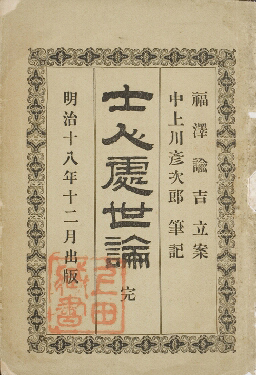 福澤諭吉立案
中上川彦次郎筆記
士人處世論 完
明治十八年十二月出版